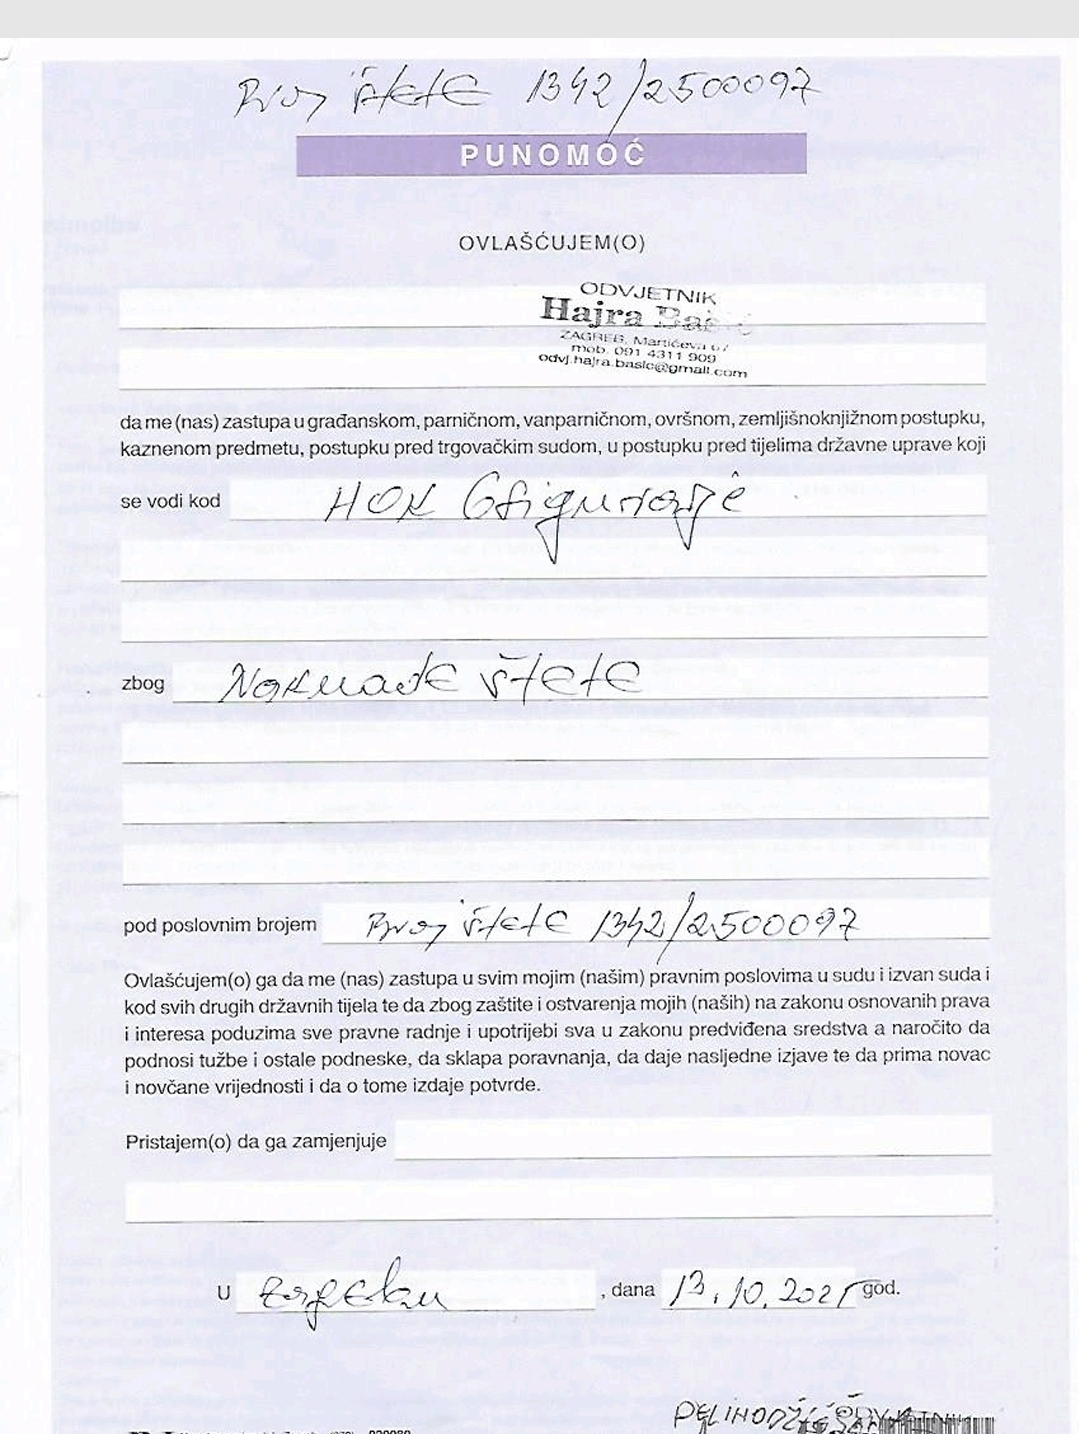 Broj štete 1342/2500097
PUNOMOĆ
OVLAŠĆUJEM(O)
ODVJETNIK
Hajra Bašić
ZAGREB, Martićeva 67
mob. 091 4311 909
odvj.hajra.basic@gmail.com
da me (nas) zastupa u građanskom, parničnom, vanparničnom, ovršnom, zemljišnoknjižnom postupku,
kaznenom predmetu, postupku pred trgovačkim sudom, u postupku pred tijelima državne uprave koji
se vodi kod HOK Osiguranje
zbog Naknade štete
pod poslovnim brojem Broj štete 1342/2500097
Ovlašćujem(o) ga da me (nas) zastupa u svim mojim (našim) pravnim poslovima u sudu i izvan suda i
kod svih drugih državnih tijela te da zbog zaštite i ostvarenja mojih (naših) na zakonu osnovanih prava
i interesa poduzima sve pravne radnje i upotrijebi sva u zakonu predviđena sredstva a naročito da
podnosi tužbe i ostale podneske, da sklapa poravnanja, da daje nasljedne izjave te da prima novac
i novčane vrijednosti i da o tome izdaje potvrde.
Pristajem(o) da ga zamjenjuje
U Zagrebu, dana 13.10.2025 god.